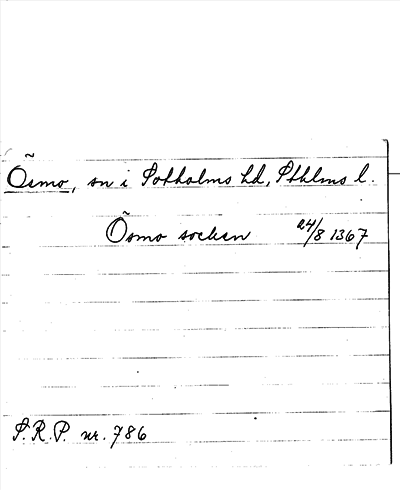 Õsmo, sn i Sotholms hd, Sthlms l.
Õsmo socken 24/8 1367
S.R.P. nr. 786